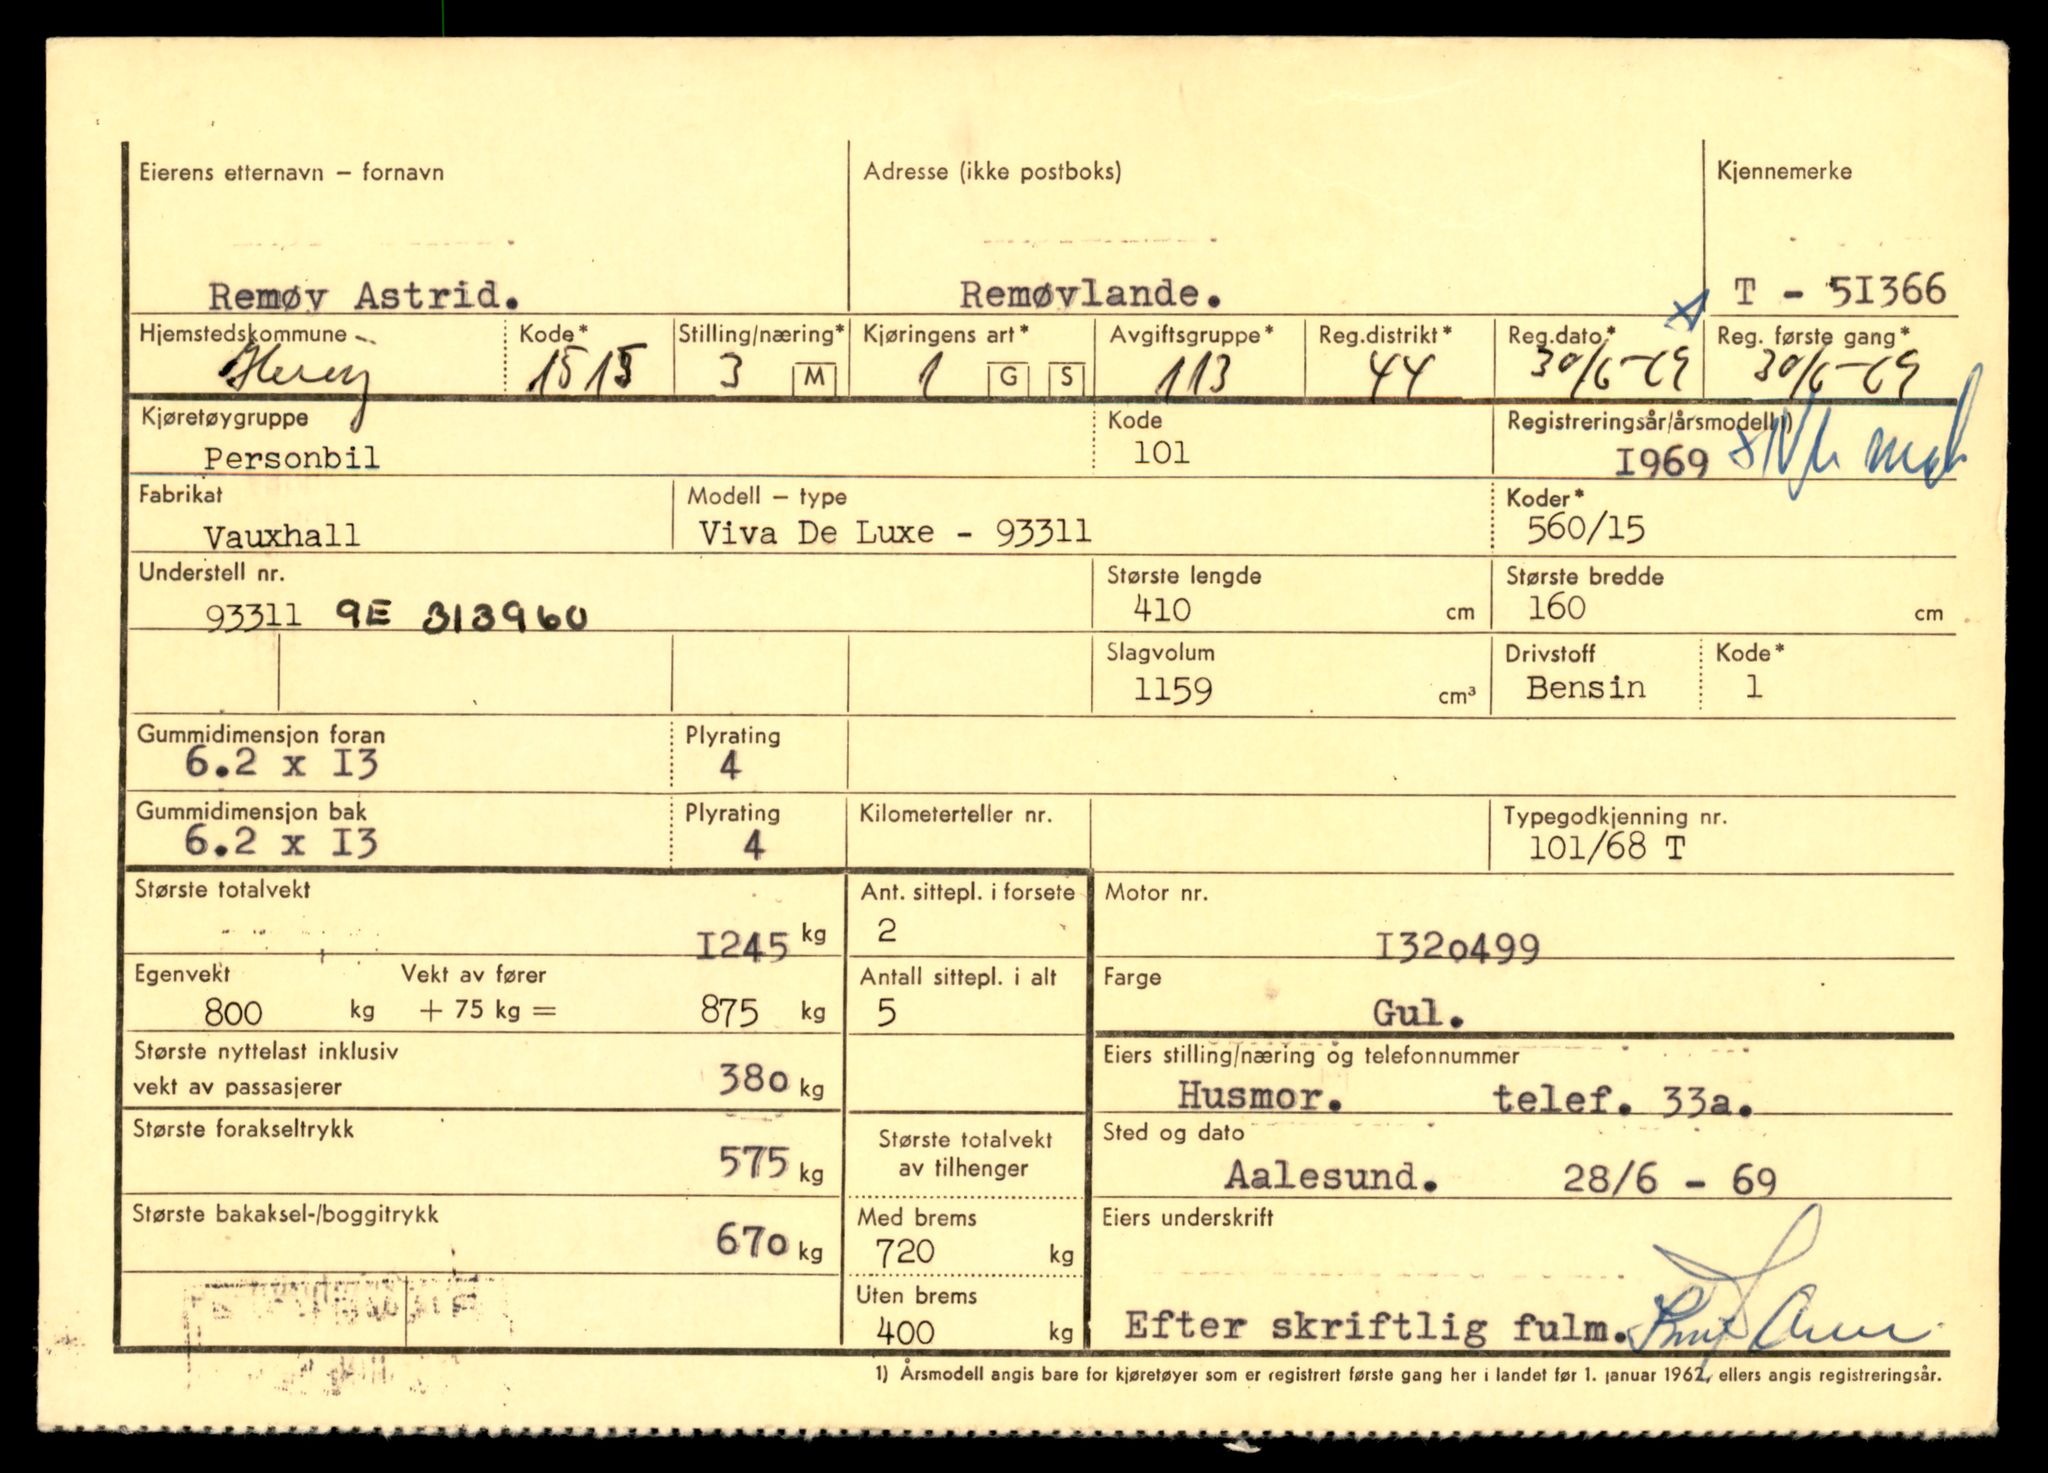 Eierens etternavn – fornavn Adresse (ikke postboks) Kjennemerke
Remøy Astrid. Remøylande. T - 5I366
Hjemstedskommune Kode* Stilling/næring* Kjøringens art* Avgiftsgruppe* Reg.distrikt* Reg.dato* Reg. første gang*
Herøy 1515 3 M 1 G S 113 44 30/6-69 30/6-69
Kjøretøygruppe Kode Registreringsår/årsmodell 1)
Personbil 101 I969
Fabrikat Modell – type Koder*
Vauxhall Viva De Luxe - 93311 560/15
Understell nr. Største lengde Største bredde
93311 9E 313960 410 cm 160 cm
Slagvolum Drivstoff Kode*
1159 cm³ Bensin 1
Gummidimensjon foran Plyrating
6.2 x I3 4
Gummidimensjon bak Plyrating Kilometerteller nr. Typegodkjenning nr.
6.2 x I3 4 101/68 T
Største totalvekt Ant. sittepl. i forsete Motor nr.
I245 kg 2 I320499
Egenvekt Vekt av fører Antall sittepl. i alt Farge
800 kg + 75 kg = 875 kg 5 Gul.
Største nyttelast inklusiv Eiers stilling/næring og telefonnummer
vekt av passasjerer 380 kg Husmor. telef. 33a.
Største forakseltrykk Største totalvekt Sted og dato
575 kg av tilhenger Aalesund. 28/6 - 69
Største bakaksel-/boggitrykk Med brems Eiers underskrift
670 kg 720 kg
Uten brems
400 kg Efter skriftlig fulm.
1) Årsmodell angis bare for kjøretøyer som er registrert første gang her i landet før 1. januar 1962, ellers angis registreringsår.